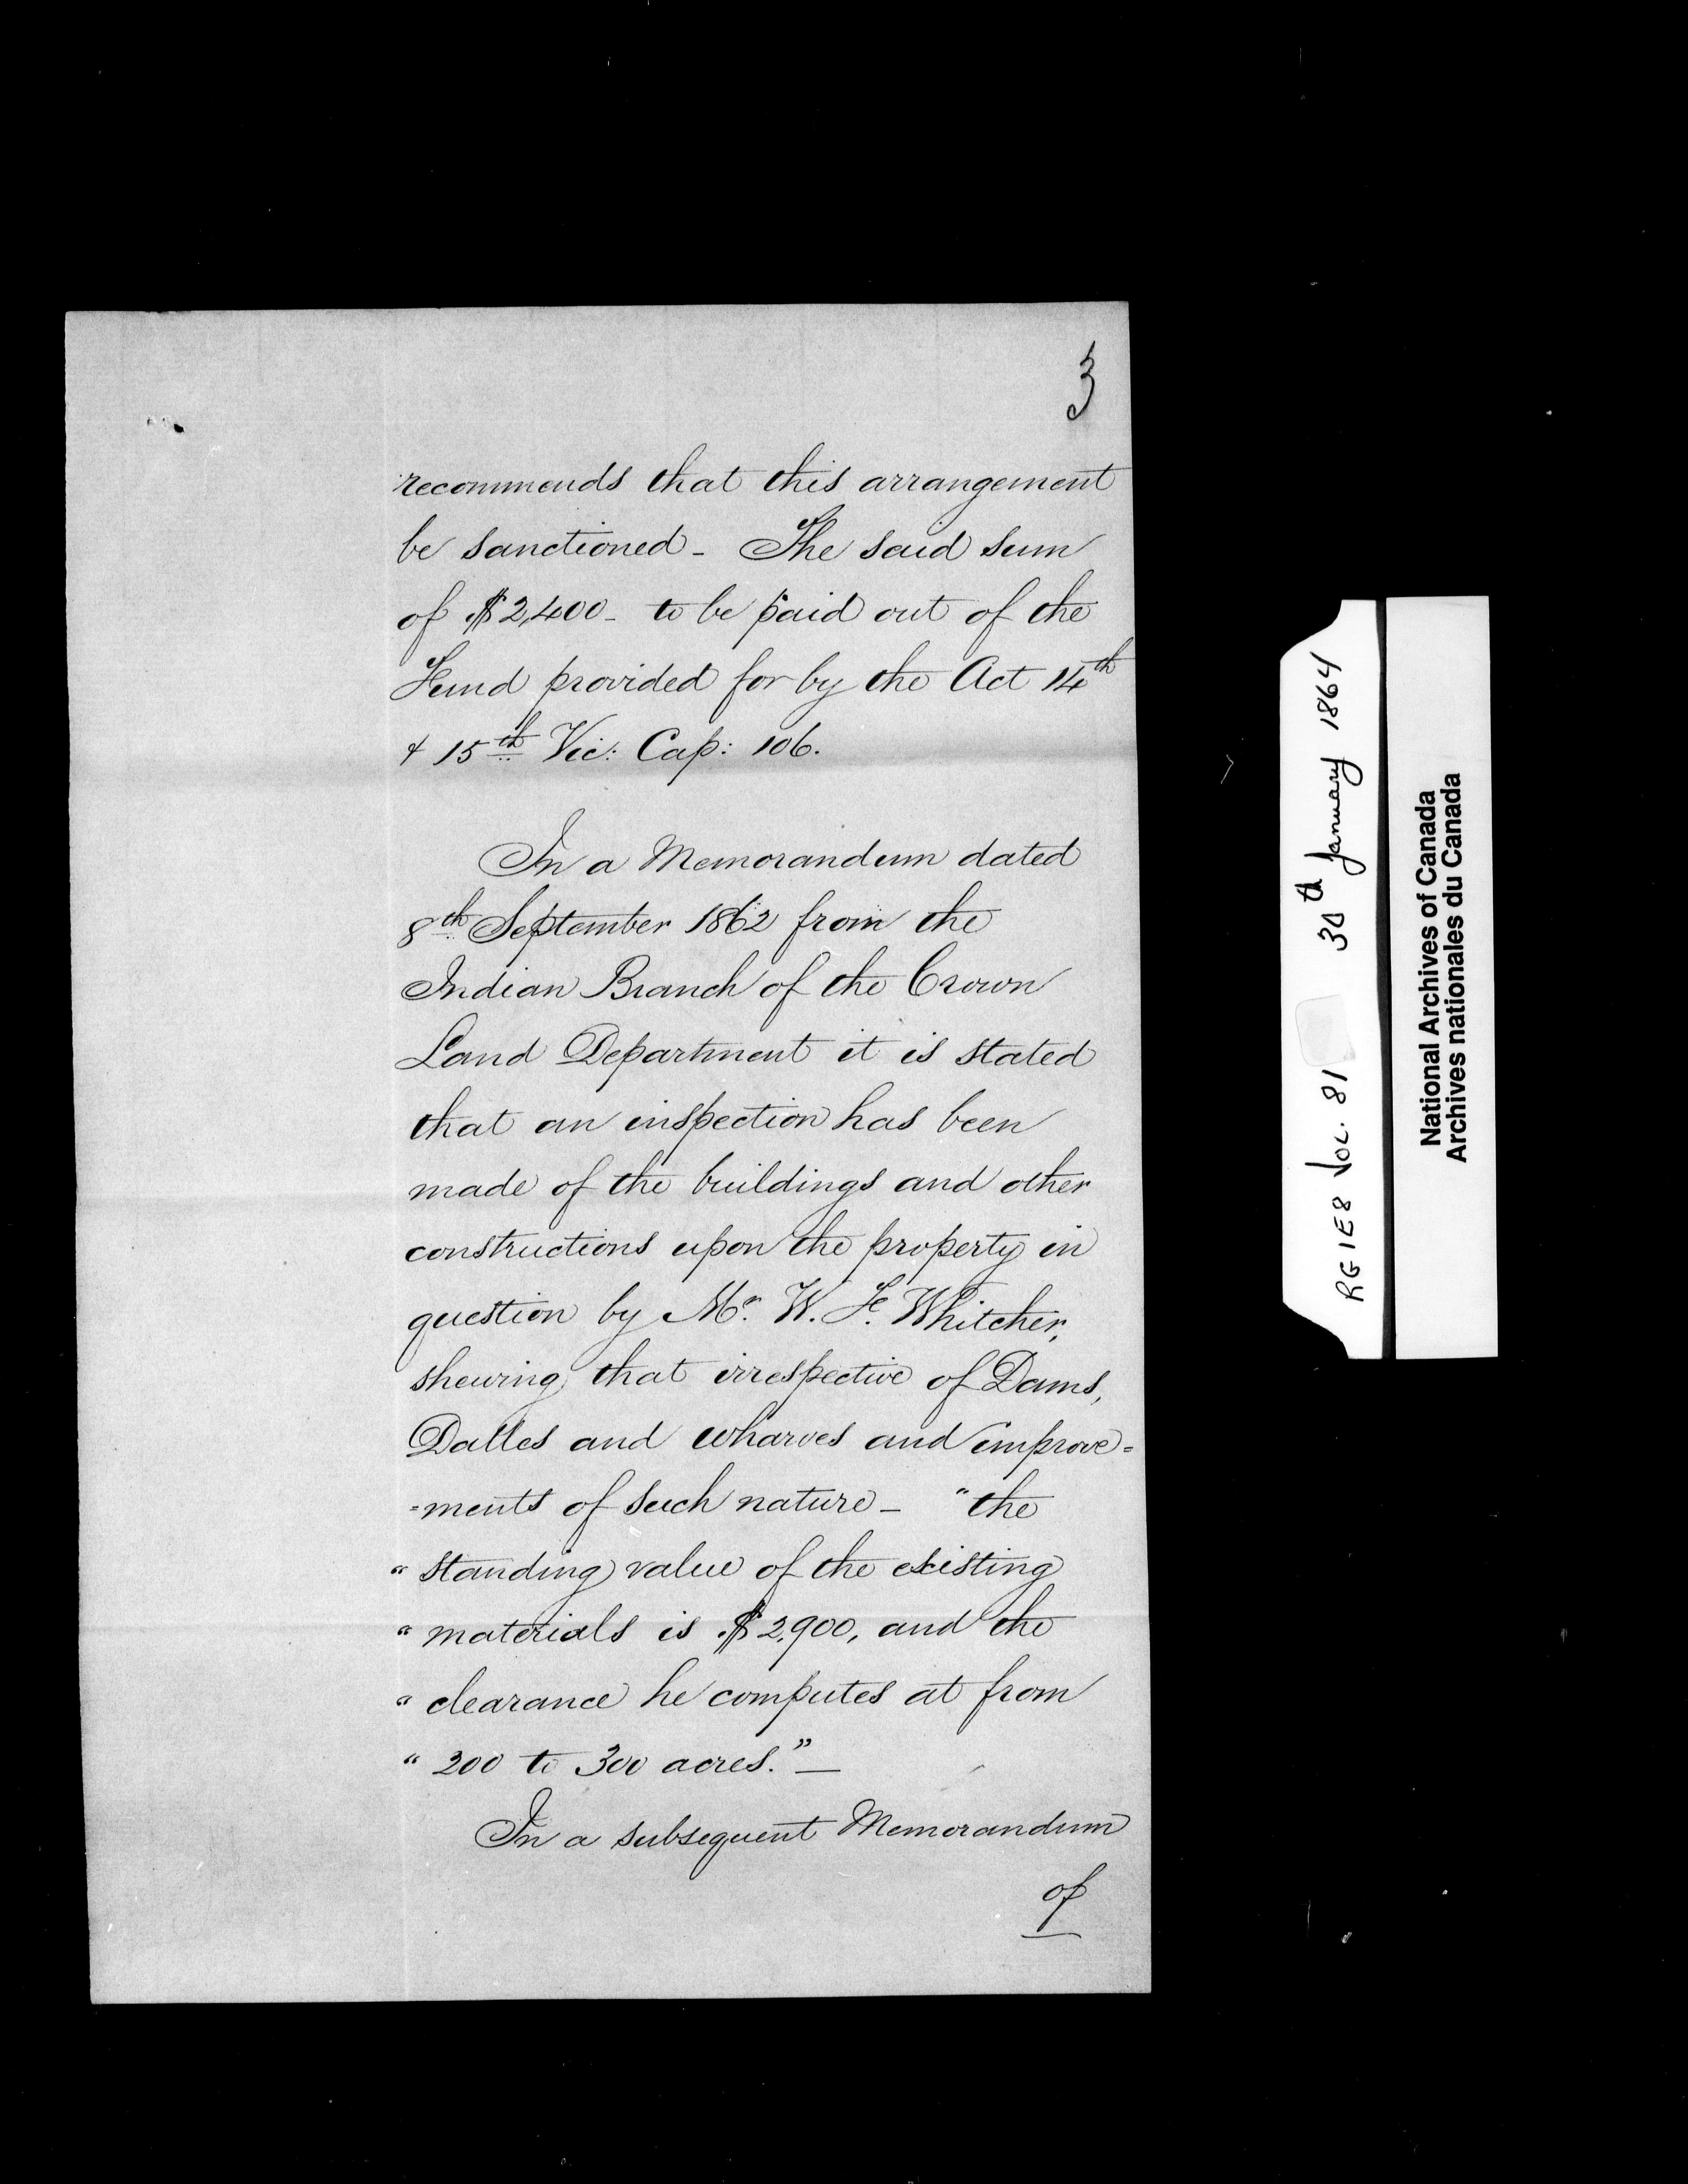 3
recommends that this arrangement
be sanctioned - The said sum
of $2,400 - to be paid out of the
Fund provided for by the Act 14th
& 15th Vic: Cap: 106.
In a Memorandum dated
8th September 1862 from the
Indian Branch of the Crown
Land Department it is stated
that an inspection has been
made of the buildings and other
constructions upon the property in
question by Mr. W. F. Whitcher,
shewing that irrespective of Dams,
Dalles and wharves and improve=
=ments of such nature - "the
" standing value of the existing
" materials is $2,900, and the
" clearance he computes at from
" 200 to 300 acres." —
In a subsequent Memorandum
of
RG1E8 Vol. 81 30th January 1864
National Archives of Canada
Archives nationales du Canada